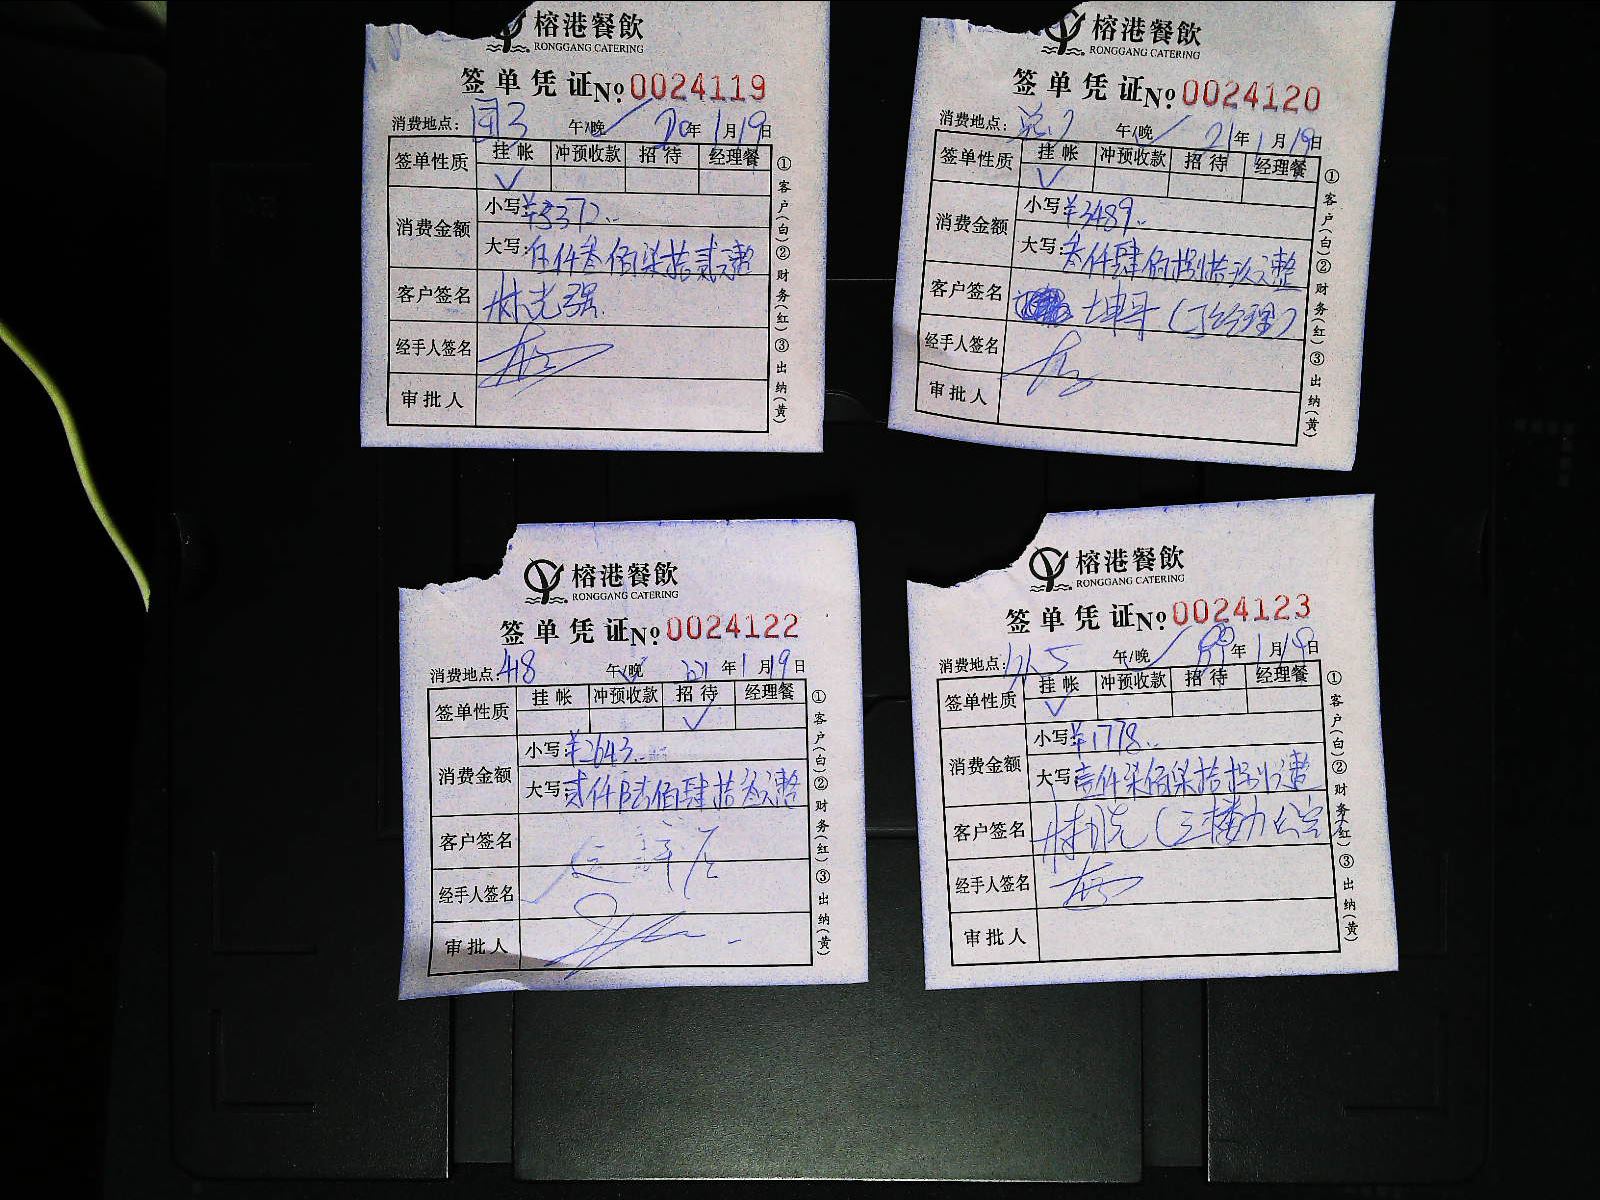 榕港餐飲
RONGGANG CATERING
签单凭证№ 0024119
消费地点: 午/晚 20年1月19日
签单性质 挂帐 冲预收款 招待 经理餐
✓
消费金额 小写:¥5372..
大写:伍仟叁佰柒拾贰元整
客户签名 林光强
经手人签名
审批人
①客户(白)②财务(红)③出纳(黄)
榕港餐飲
RONGGANG CATERING
签单凭证№ 0024120
消费地点: 午/晚 21年1月19日
签单性质 挂帐 冲预收款 招待 经理餐
✓
消费金额 小写:¥3489..
大写:叁仟肆佰捌拾玖元整
客户签名 坤哥(丁经理)
经手人签名
审批人
①客户(白)②财务(红)③出纳(黄)
榕港餐飲
RONGGANG CATERING
签单凭证№ 0024122
消费地点:418 午/晚 年1月19日
签单性质 挂帐 冲预收款 招待 经理餐
✓
消费金额 小写:¥2643..
大写:贰仟陆佰肆拾叁元整
客户签名
经手人签名
审批人
①客户(白)②财务(红)③出纳(黄)
榕港餐飲
RONGGANG CATERING
签单凭证№ 0024123
消费地点: 午/晚 年1月19日
签单性质 挂帐 冲预收款 招待 经理餐
✓
消费金额 小写:¥1778..
大写:壹仟柒佰柒拾捌元整
客户签名 (三楼办公室
经手人签名
审批人
①客户(白)②财务(红)③出纳(黄)